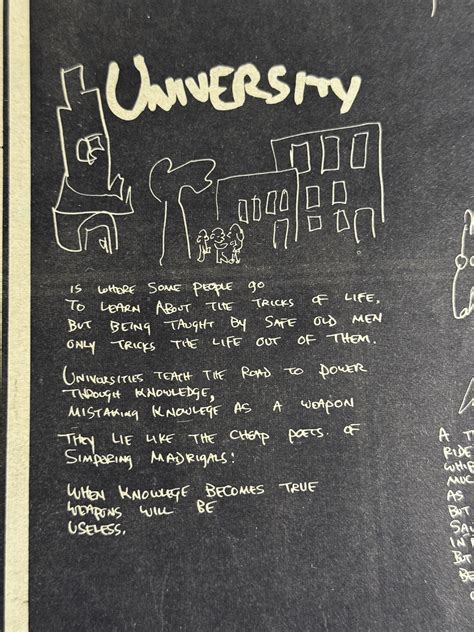 UNIVERSITY
IS WHERE SOME PEOPLE GO
TO LEARN ABOUT THE TRICKS OF LIFE.
BUT BEING TAUGHT BY SAFE OLD MEN
ONLY TRICKS THE LIFE OUT OF THEM.
UNIVERSITIES TEACH THE ROAD TO POWER
THROUGH KNOWLEDGE,
MISTAKING KNOWLEGE AS A WEAPON
THEY LIE LIKE THE CHEAP POETS OF
SIMPERING MADRIGALS!
WHEN KNOWLEGE BECOMES TRUE
WEAPONS WILL BE
USELESS.
A T
RIDE
WHI
MUC
AS
BUT
SAU
IN
BUT
BE